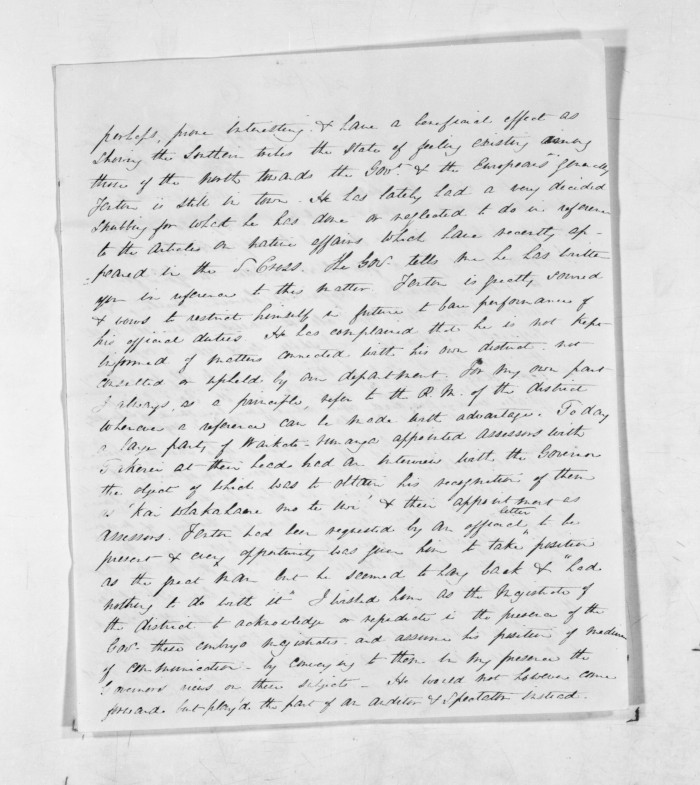 perhaps, prove interesting & have a beneficial effect as
shewing the Southern tribes the state of feeling existing among
those of the North towards the Govr. & the Europeans generally
Fenton is still in town. He has lately had a very decided
snubbing for what he has done or neglected to do in reference
to the articles on native affairs which have recently ap-
-peared in the S. Cross. The Govr. tells me he has written
you in reference to this matter. Fenton is greatly soured
& vows to restrict himself in future to bare performance of
his official duties. He has complained that he is not kept
informed of matters connected with his own district nor
consulted or upheld by our department. For my own part
I always, as a principle, refer to the R. M. of the district
wherever a reference can be made with advantage. Today
a large party of Waikato runanga appointed assessors with
Takerei at their head had an interview with the Governor
the object of which was to obtain his recognition of them
as 'Kai whakahaere mo te iwi' & their appointment as
assessors. Fenton had been requested by an official letter to be
present & every opportunity was given him to take position
as the great man but he seemed to hang back & "had
nothing to do with it" I wished him as the Magistrate of
the district to acknowledge or repudiate in the presence of the
Govr. these embryo magistrates and assume his position of medium
of communication by conveying to them in my presence the
Governors views on their subjects - He would not however come
forward but play'd the part of an auditor & Spectator instead.